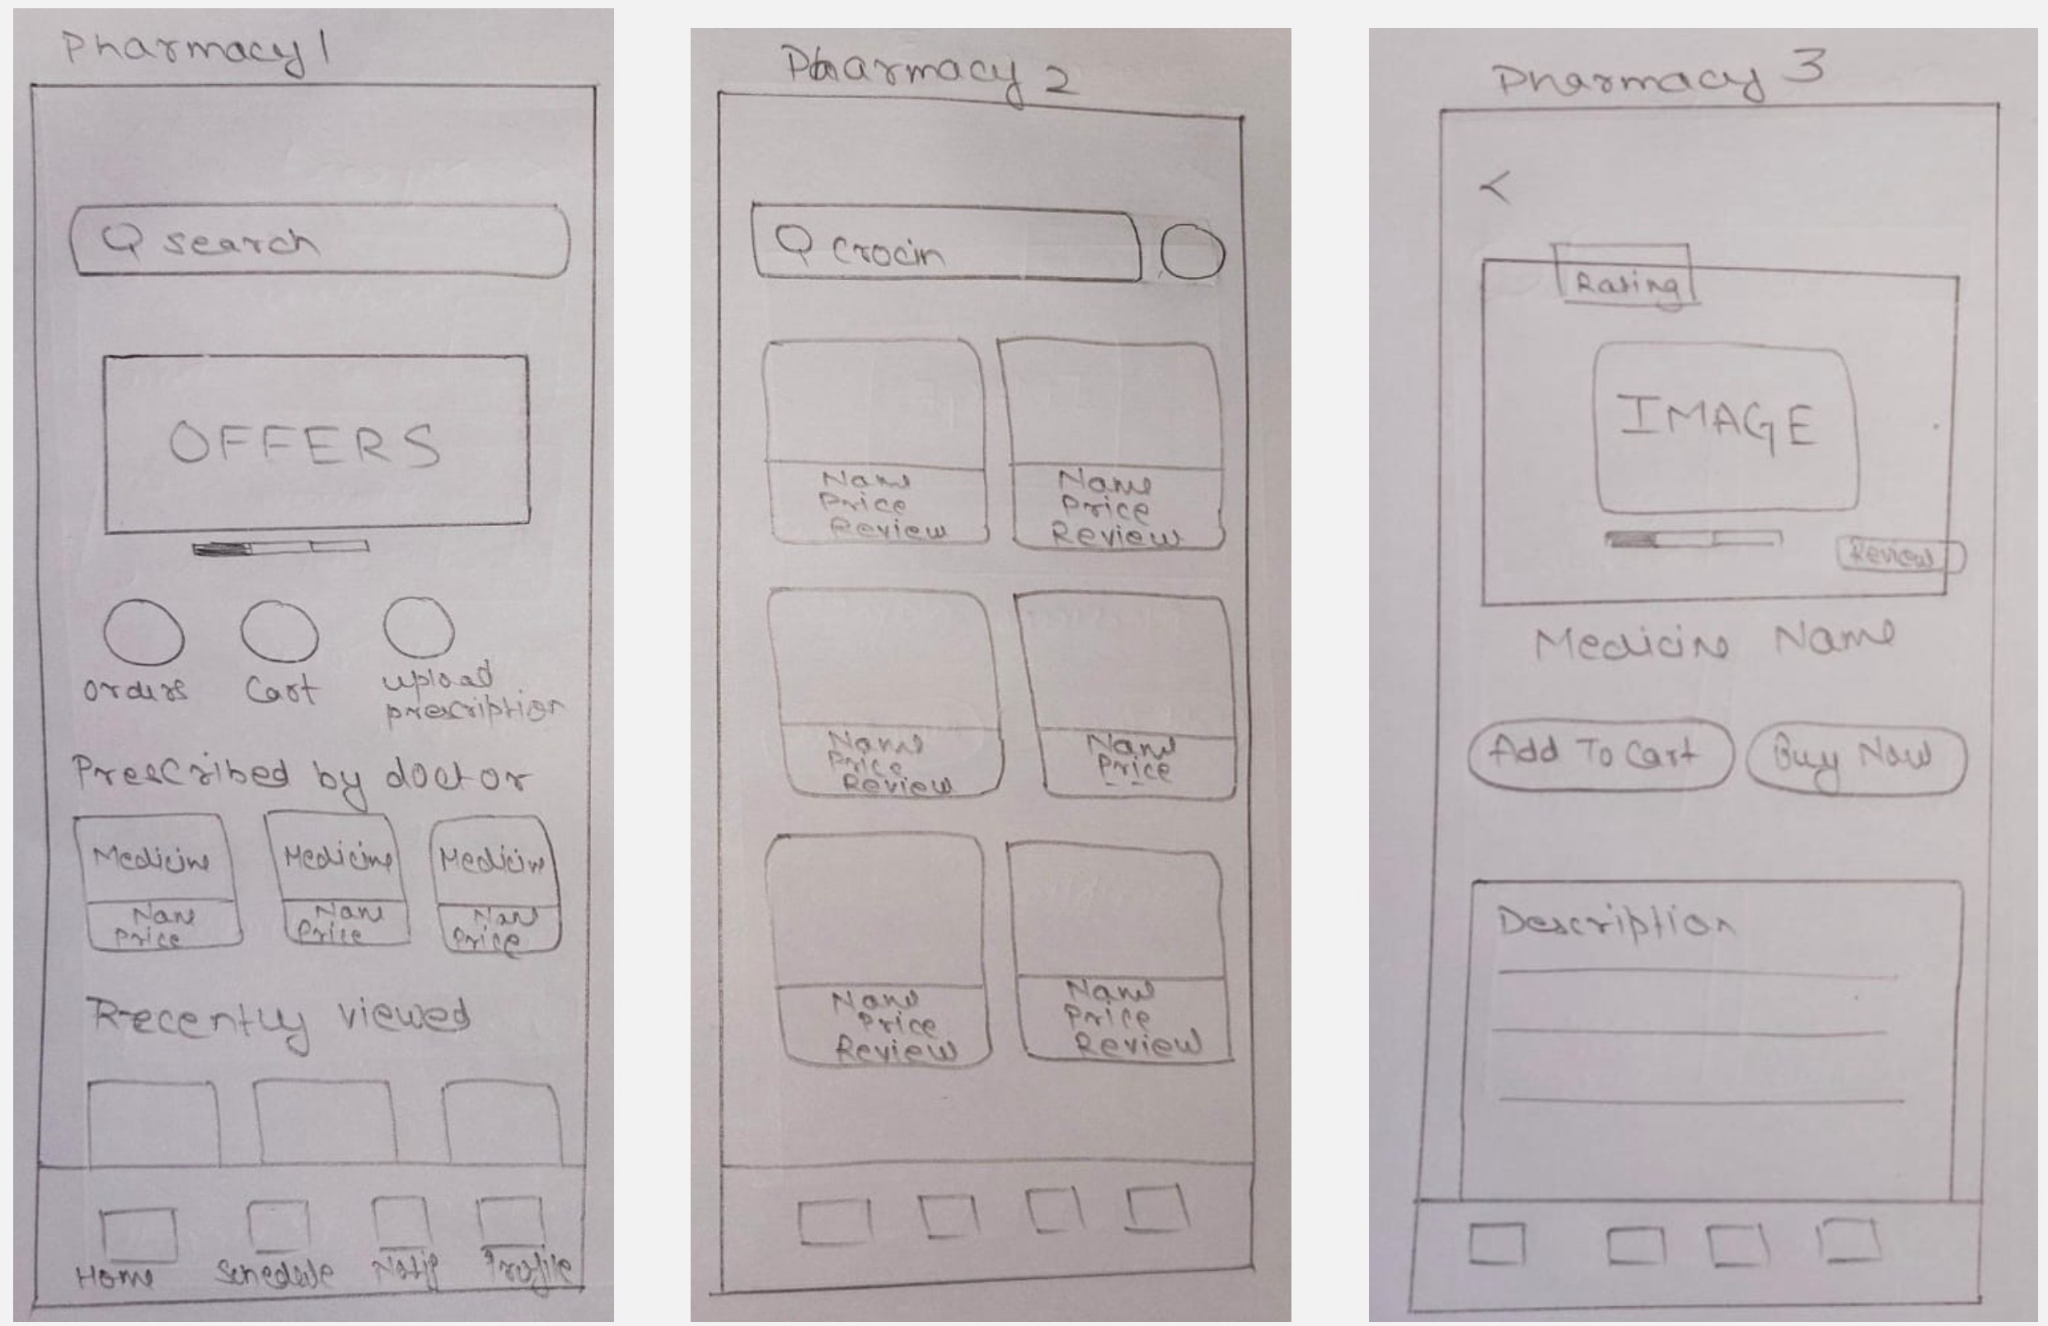 Pharmacy 1
search
OFFERS
orders Cart upload
prescription
Prescribed by doctor
Medicine Medicine Medicine
Name Name Name
Price Price Price
Recently viewed
Home Schedule Notif Profile
Pharmacy 2
Crocin
Name Name
Price Price
Review Review
Name Name
Price Price
Review
Name Name
Price Price
Review Review
Pharmacy 3
<
Rating
IMAGE
Review
Medicine Name
Add To Cart Buy Now
Description